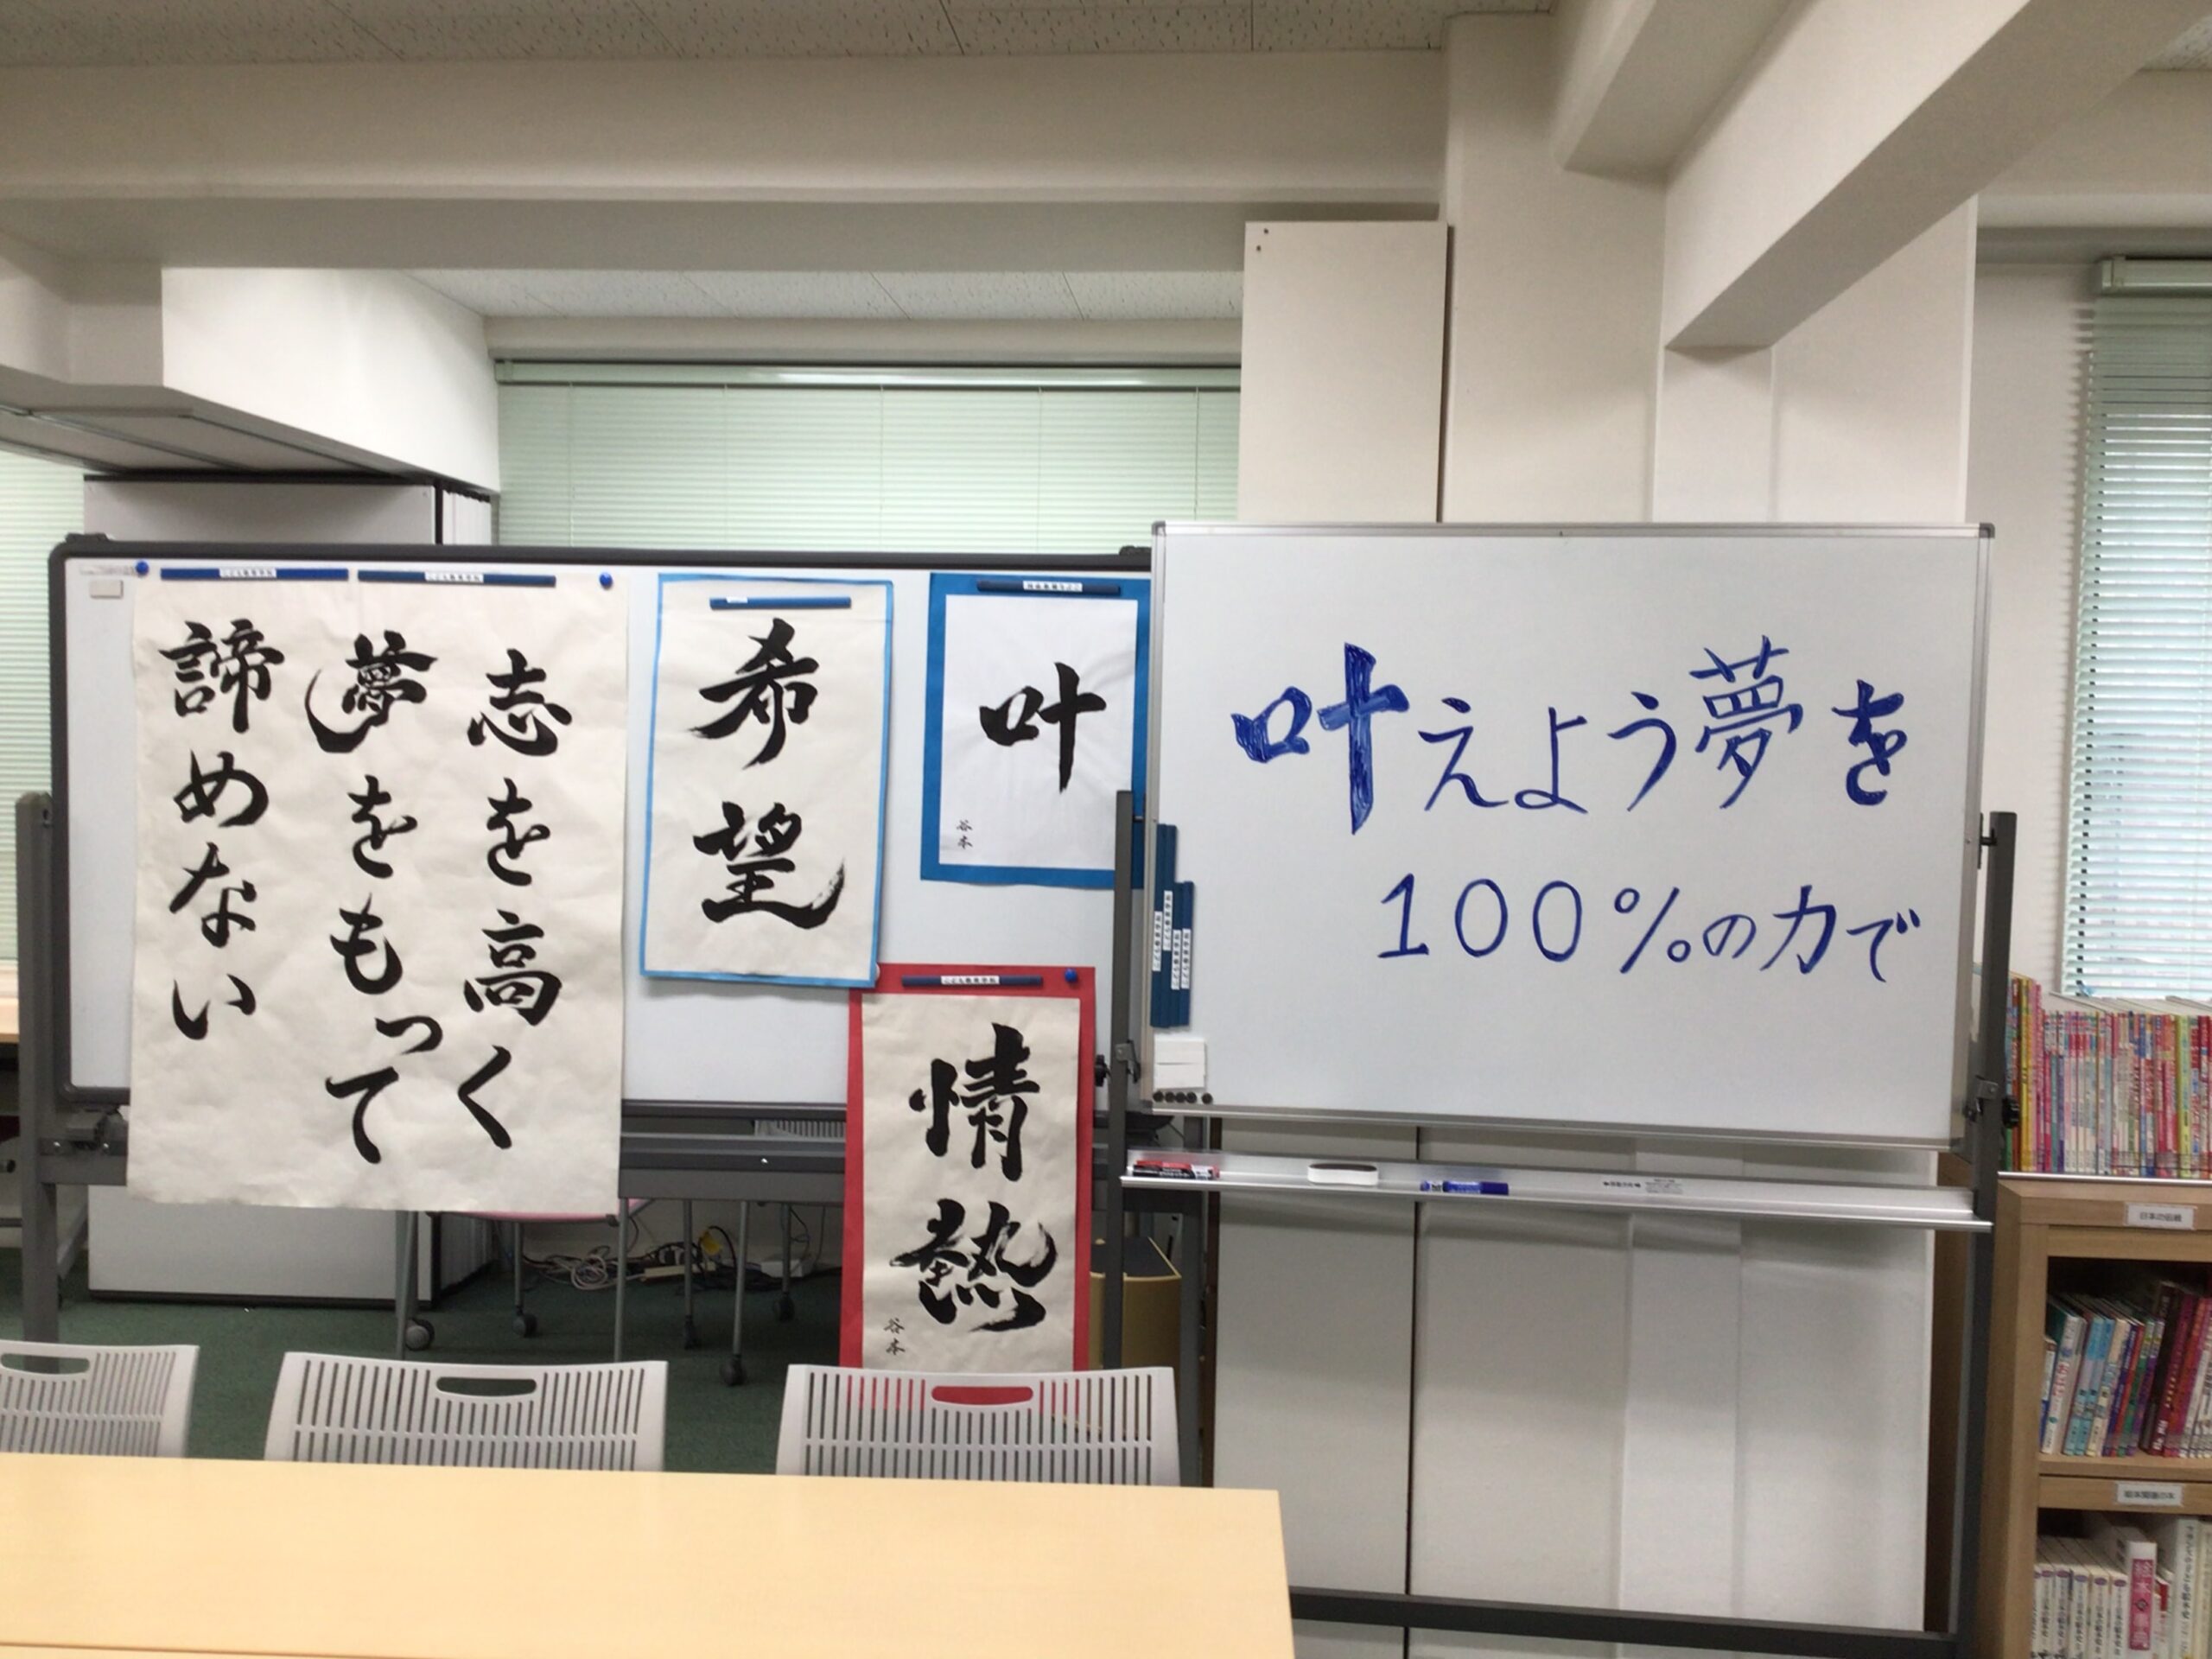 志を高く
夢をもって
諦めない
希望
叶
谷本
情熱
谷本
叶えよう夢を
100%の力で
日本の伝統